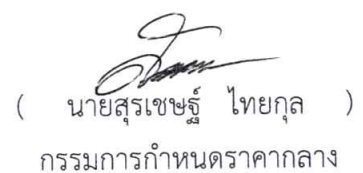 ( นายสุรเชษฐ์ ไทยกุล )
กรรมการกำหนดราคากลาง